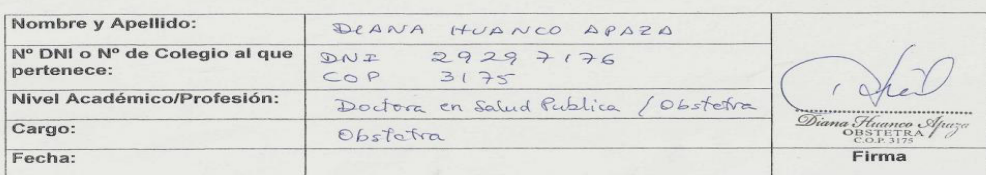 Nombre y Apellido: DIANA HUANCO APAZA
Nº DNI o Nº de Colegio al que pertenece: DNI 29297176
COP 3175
Nivel Académico/Profesión: Doctora en Salud Publica / Obstetra
Cargo: Obstetra
Fecha:
Diana Huanco Apaza
OBSTETRA
C.O.P. 3175
Firma